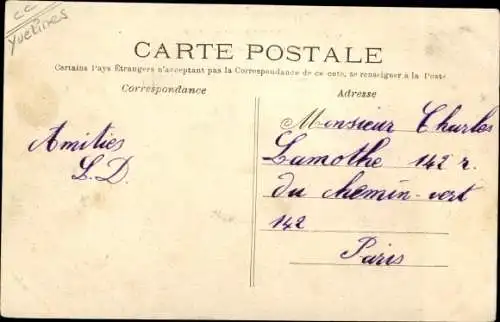 cc
Yvelines
CARTE POSTALE
Certains Pays Étrangers n'acceptant pas la Correspondance de ce coté, se renseigner à la Poste
Correspondance
Adresse
Amitiés
L.D.
Monsieur Charles
Lamothe 142 r.
du chemin-vert
142
Paris